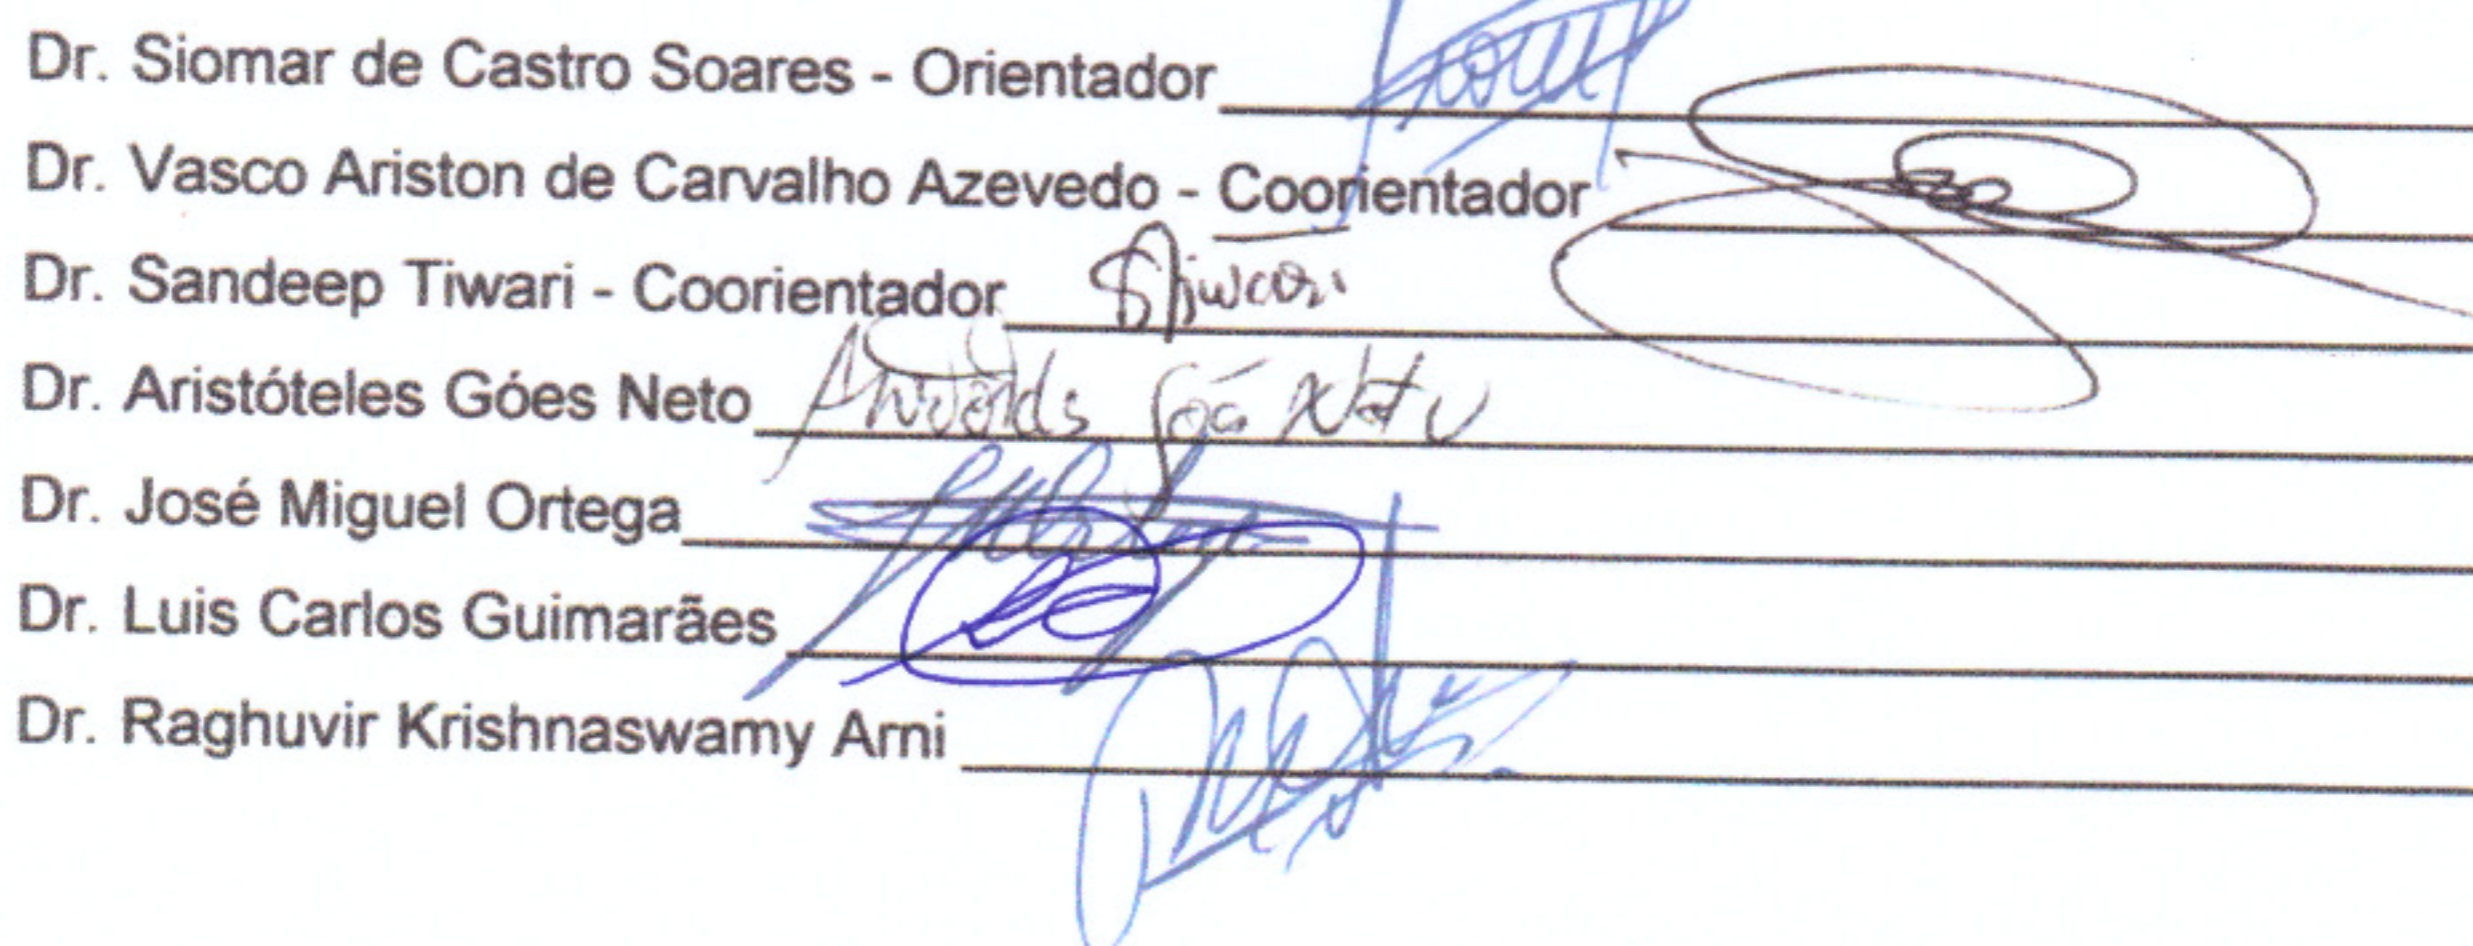 Dr. Siomar de Castro Soares - Orientador
Dr. Vasco Ariston de Carvalho Azevedo - Coorientador
Dr. Sandeep Tiwari - Coorientador STiwari
Dr. Aristóteles Góes Neto
Dr. José Miguel Ortega
Dr. Luis Carlos Guimarães
Dr. Raghuvir Krishnaswamy Arni